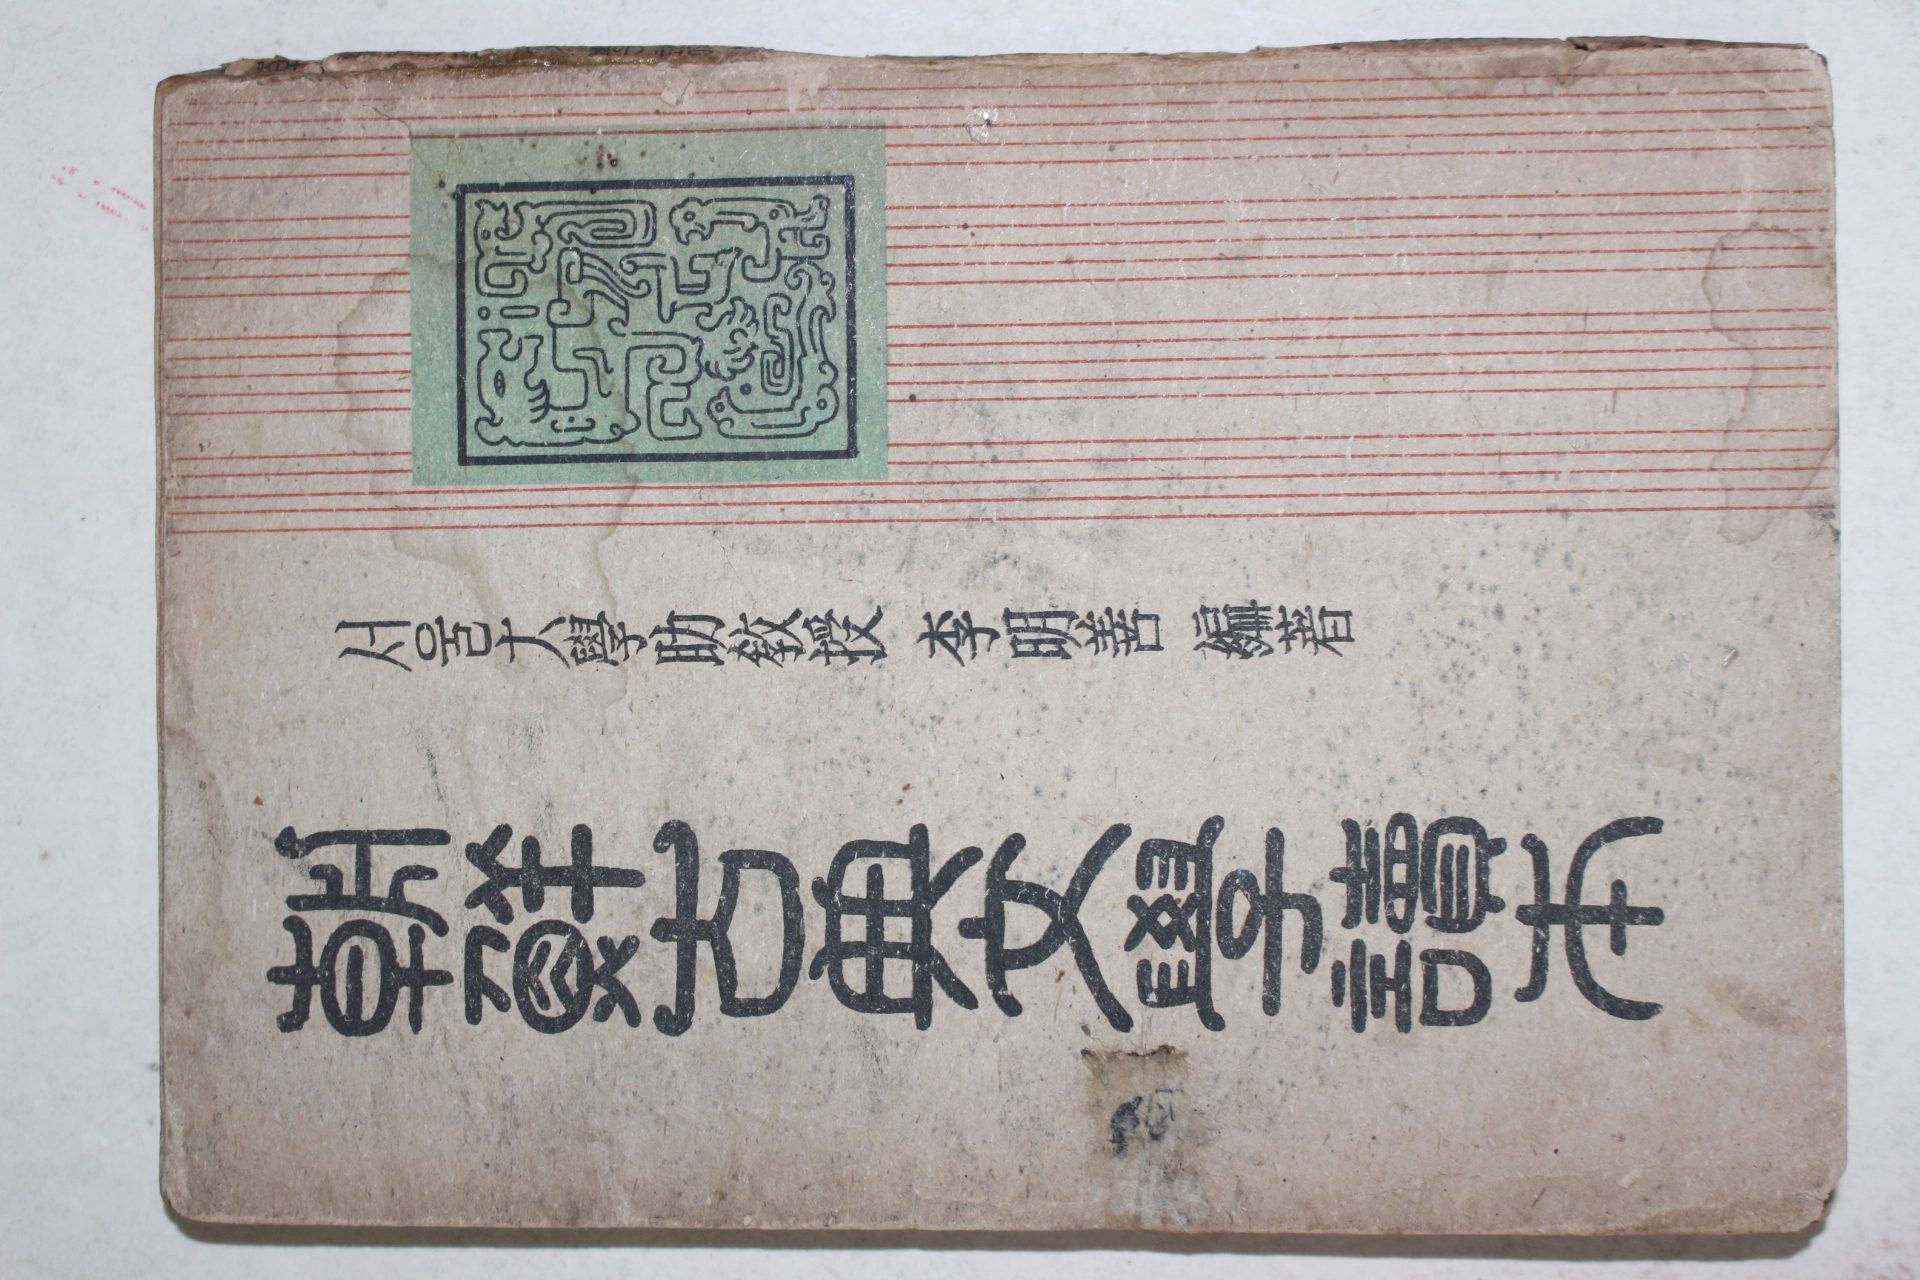 서울大學助敎授 李明善 編著
朝鮮古典文學讀本